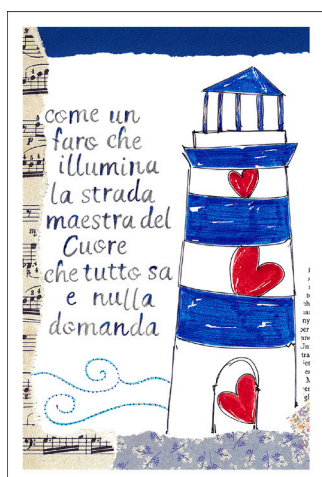 come un
faro che
illumina
la strada
maestra del
Cuore
che tutto sa
e nulla
domanda